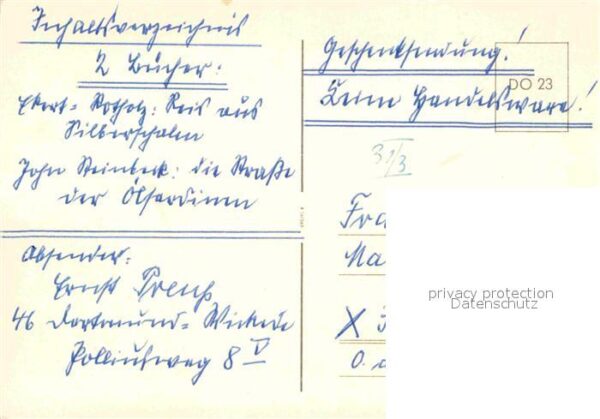 Inhaltsverzeichnis
2 Bücher:
Ekert-Rotholz: Reis aus
Silberschalen
John Steinbeck: die Straße
der Ölsardinen
Absender:
Ernst
46 Dortmund-Wickede
8 V
Geschenksendung!
Keine Handelsware!
DO 23
31/3
Fra
Ma
X
O.
privacy protection
Datenschutz